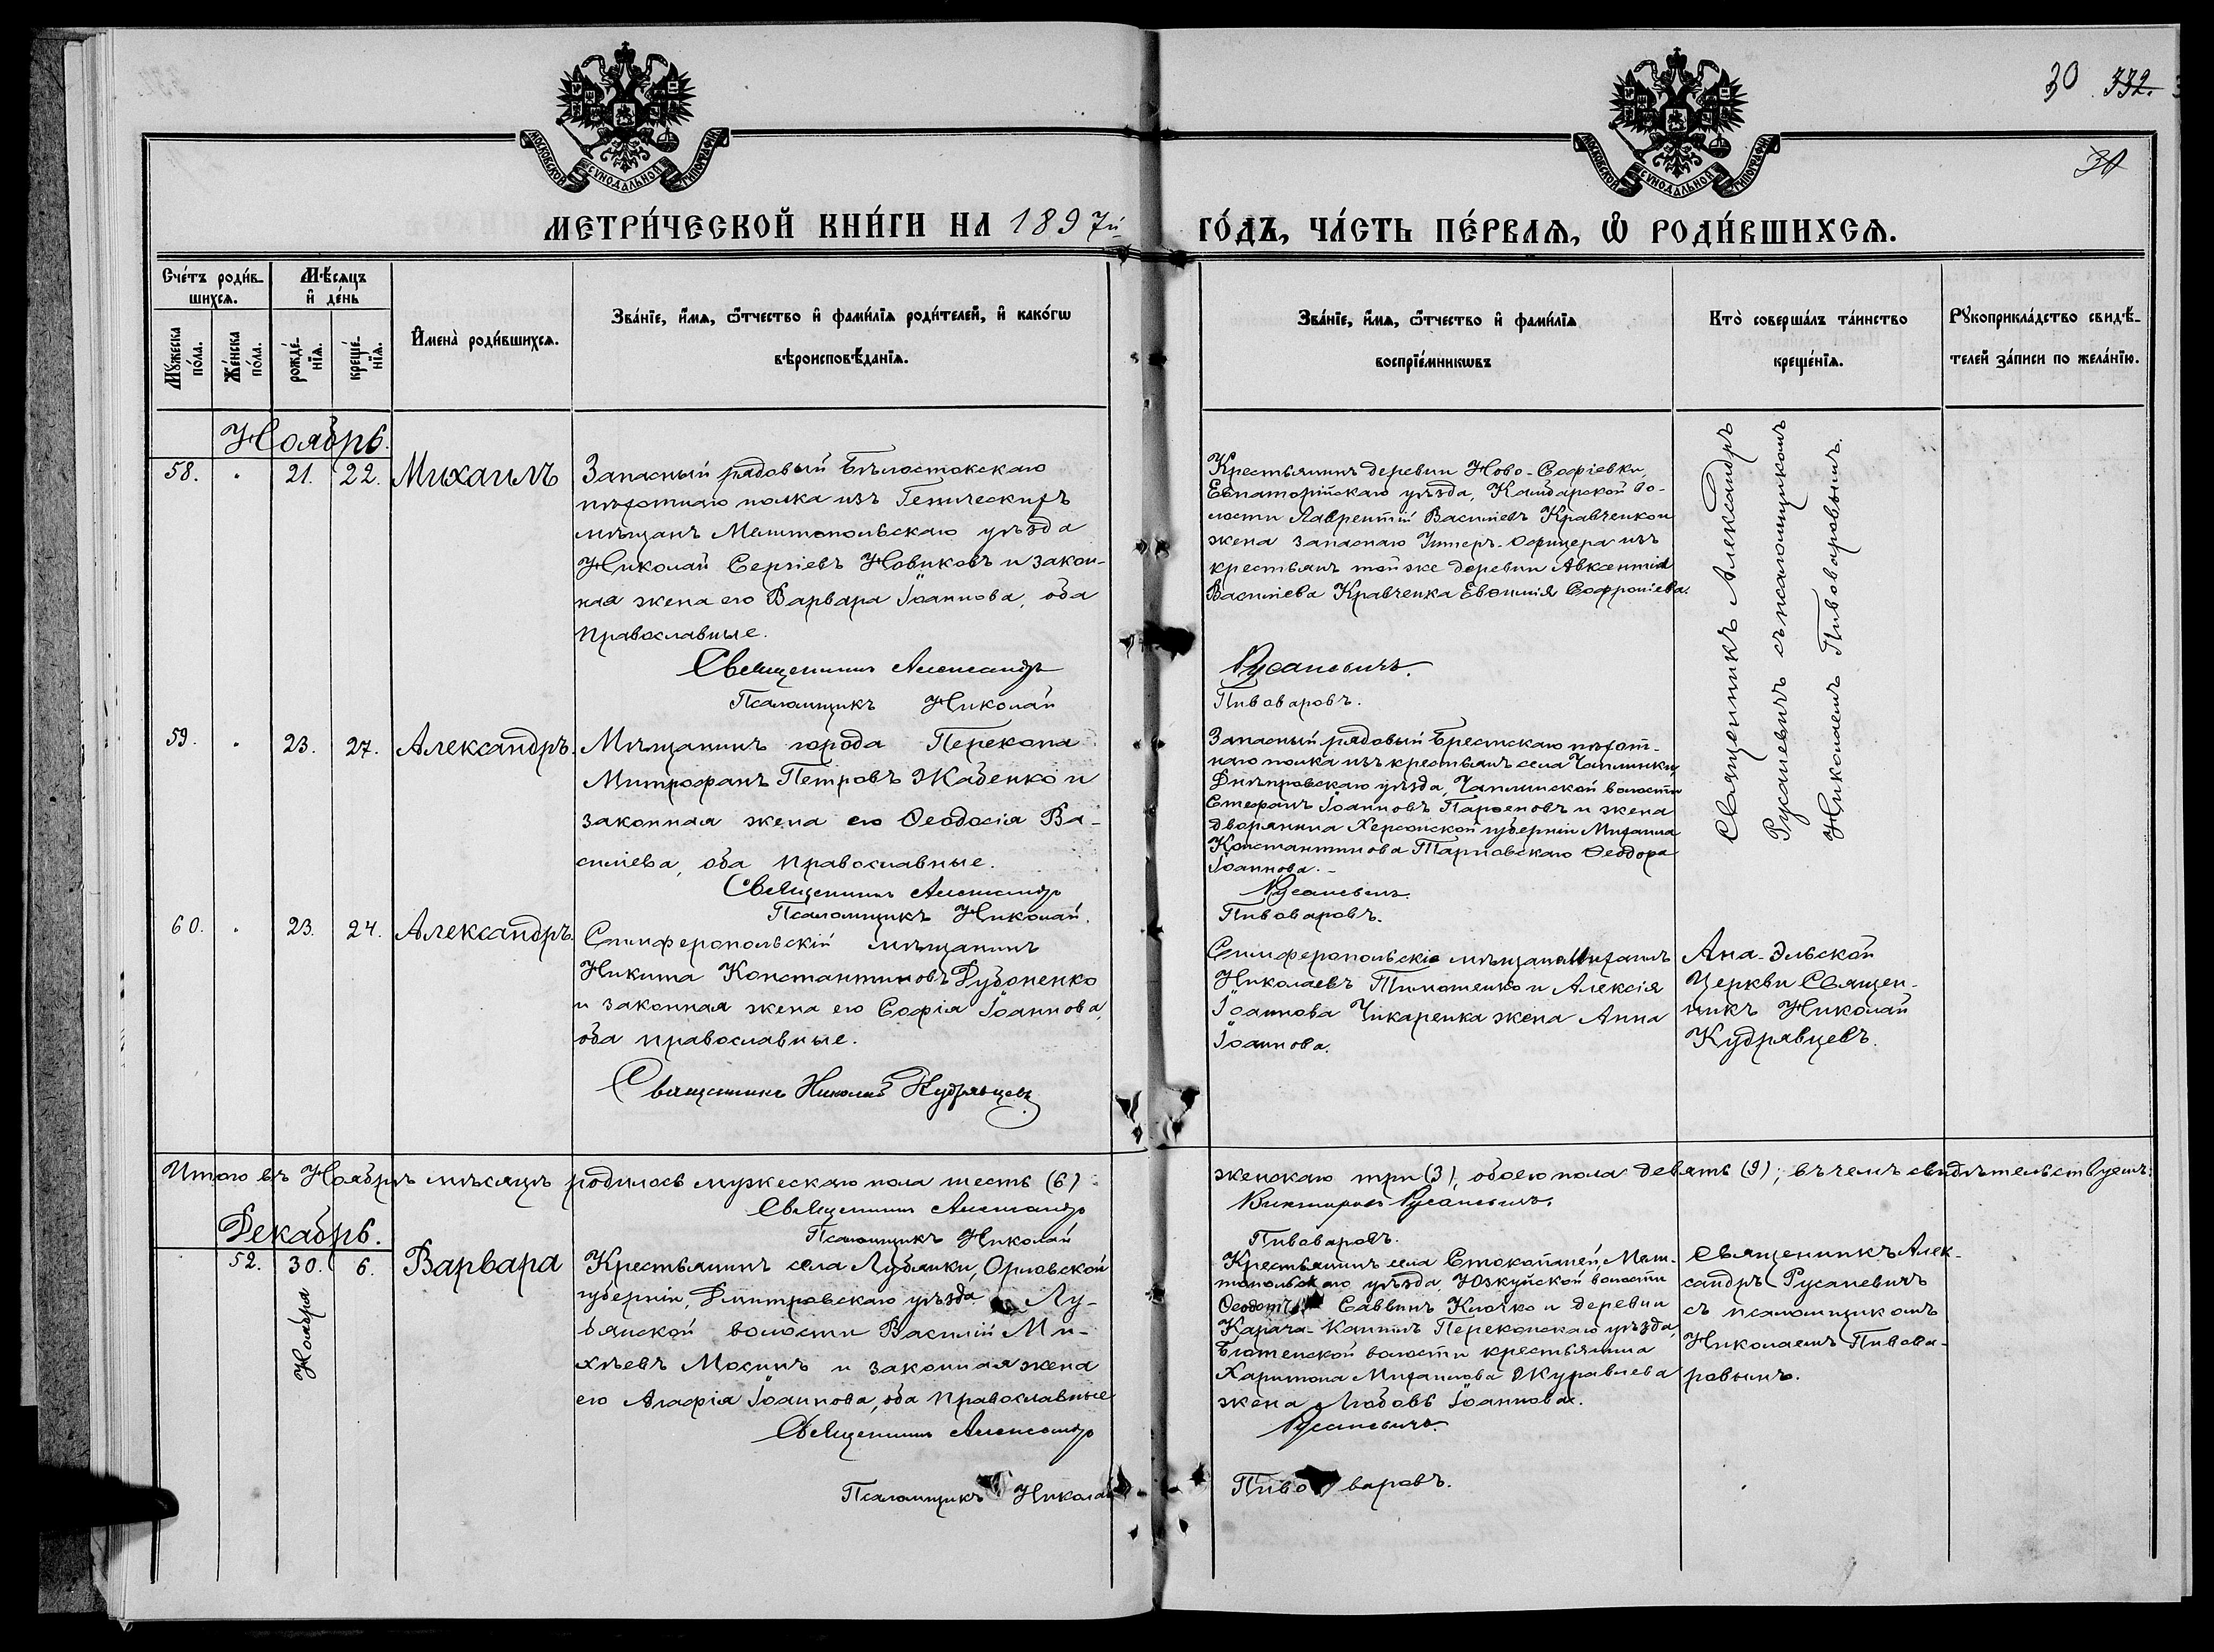 30 332.
30
МОСКОВСКОЙ СѴНОДАЛЬНОЙ ТИПОГРАФІИ
МОСКОВСКОЙ СѴНОДАЛЬНОЙ ТИПОГРАФІИ
МЕТРИ́ЧЕСКОЙ КНИ́ГИ НА 1897й
ГО́ДЪ, ЧА́СТЬ ПЕ́РВАѦ, Ѡ҆ РОДИ́ВШИХСѦ.
Сче́тъ роди́в-
шихсѧ.
Мѣ́сѧцъ
и҆ де́нь
Мꙋ́жеска
по́ла.
Же́нска
по́ла.
рожде́-
нїѧ.
креще́-
нїѧ.
И҆мена̀ роди́вшихсѧ.
Зва́нїе, и҆́мѧ, ѻ҆́тчество и҆ фами́лїѧ роди́телей, и҆ како́гѡ
вѣроисповѣ́данїѧ.
Зва́нїе, и҆́мѧ, ѻ҆́тчество и҆ фами́лїѧ
воспрїе́мникѡвъ
Кто̀ соверша́лъ та́инство
креще́нїѧ.
Рꙋкоприкла́дство свидѣ́-
телей за́писи по жела́нїю.
Ноябрь.
58. " 21. 22. Михаилъ
Запасный рядовый Бѣлостокскаго
пѣхотнаго полка изъ Геническихъ
мѣщанъ Мелитопольскаго уѣзда
Николай Сергіевъ Новиковъ и закон-
ная жена его Варвара Іоаннова, оба
Православные.
Священникъ Александръ
Псаломщикъ Николай
Крестьянинъ деревни Ново-Софіевки,
Евпаторійскаго уѣзда, Камбарской во-
лости Лаврентій Василіевъ Кравченко и
жена запаснаго Унтеръ-Офицера изъ
крестьянъ той же деревни Авксентія
Василіева Кравченка Евѳимія Софроніева.
Русаневичъ.
Пивоваровъ.
Священникъ Александръ
Русаневичъ съ псаломщикомъ
Николаемъ Пивоваровымъ.
59. " 23. 27. Александръ.
Мѣщанинъ города Перекопа
Митрофанъ Петровъ Жабенко и
законная жена его Ѳеодосія Ва-
силіева, оба Православные.
Священникъ Александръ
Псаломщикъ Николай.
Запасный рядовый Брестскаго пѣхот-
наго полка изъ крестьянъ села Чаплинки,
Днѣпровскаго уѣзда, Чаплинской волости
Стефанъ Іоанновъ Парѳеновъ и жена
дворянина Херсонской губерніи Михаила
Константинова Тарновскаго Ѳеодора
Іоаннова.-
Русаневичъ.
Пивоваровъ.
60. " 23. 24. Александръ.
Симферопольскій мѣщанинъ
Никита Константиновъ Дубоненко
и законная жена его Софія Іоаннова,
оба православные.
Священникъ Николай Кудрявцевъ
Симферопольскіе мѣщане Михаилъ
Николаевъ Тимошенко и Алексія
Іоаннова Чикаренка жена Анна
Іоаннова.
Ана-Эльской
Церкви Священ-
никъ Николай
Кудрявцевъ.
Итого въ Ноябрѣ мѣсяцѣ родилось мужескаго пола шесть (6)
женскаго три (3), обоего пола девять (9); въ чемъ свидѣтельствуемъ:
Священникъ Александръ
Викторовъ Русаневичъ.
Псаломщикъ Николай
Пивоваровъ.
Декабрь.
52. 30. 6. Варвара
Ноября
Крестьянинъ села Лубянки, Орловской
губерніи, Дмитровскаго уѣзда Лу-
бянской волости Василій Ми-
хѣевъ Мосинъ и законная жена
его Агафія Іоаннова, оба Православные
Священникъ Александръ
Псаломщикъ Николай
Крестьянинъ села Стокопаней, Мели-
топольскаго уѣзда, Юзкуйской волости
Ѳеодотъ Саввинъ Клочко и деревни
Карача-Кангилъ Перекопскаго уѣзда,
Бютенской волости крестьянина
Харитона Михаилова Журавлева
жена Любовь Іоаннова.
Русаневичъ.
Пивоваровъ.
Священникъ Алек-
сандръ Русаневичъ
съ псаломщикомъ
Николаемъ Пивова-
ровымъ.